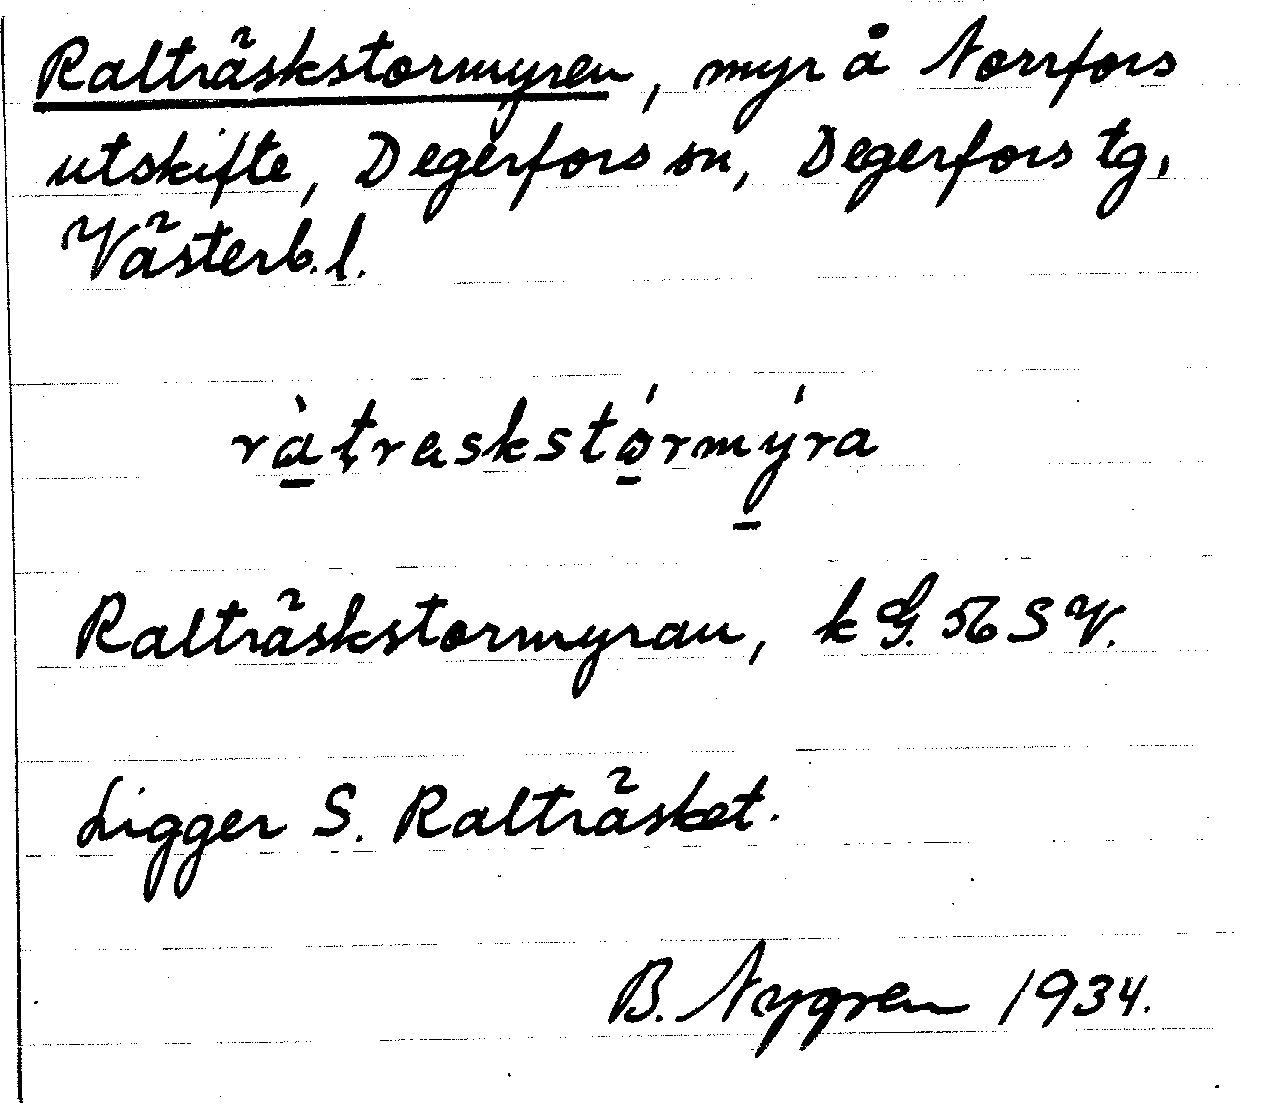 Ralträskstormyren, myr å Norrfors
utskifte, Degerfors sn, Degerfors tg,
Västerb. l.
ràtraskstórmýra
Ralträskstormyran, k G. 56 S V.
Ligger S. Ralträsket.
B. Nygren 1934.